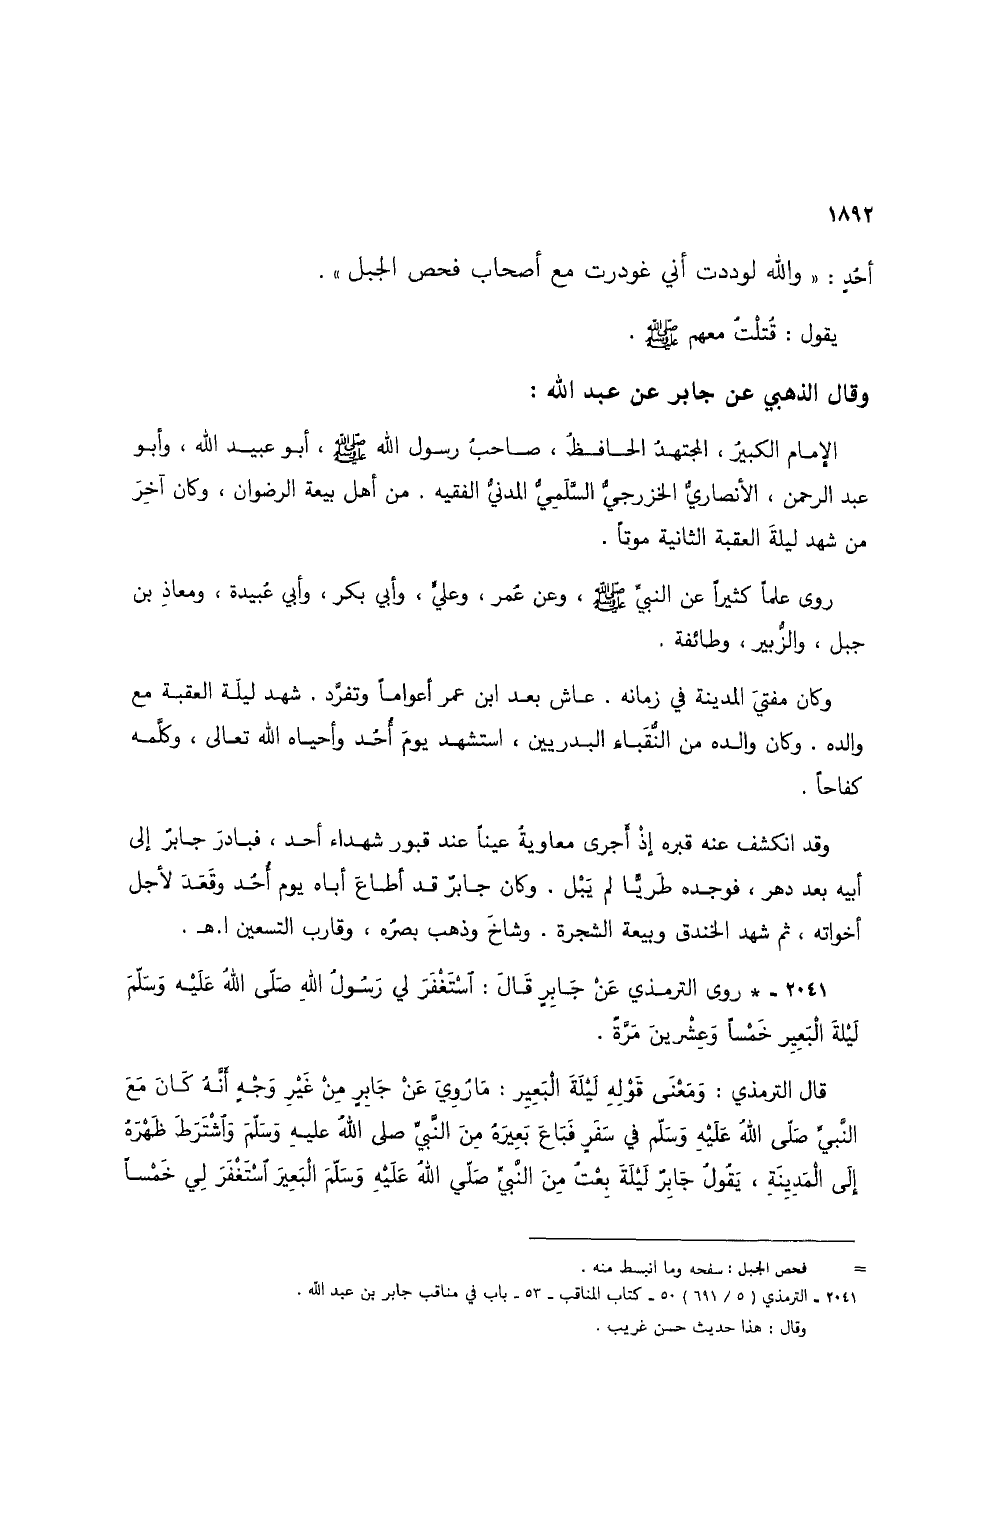 ١٨٩٢
أحُدٍ : « والله لوددت أني غودرت مع أصحاب فحص الجبل » .
يقول : قُتلْتُ معهم ﷺ .
وقال الذهبي عن جابر عن عبد الله :
الإمام الكبيرُ ، المجتهدُ الحافظُ ، صاحبُ رسول الله ﷺ ، أبو عبيد الله ، وأبو
عبد الرحمن ، الأنصاريُّ الخزرجيُّ السَّلَمِيُّ المدنيُّ الفقيه . من أهل بيعة الرضوان ، وكان آخِرَ
من شهد ليلةَ العقبة الثانية موتاً .
روى علماً كثيراً عن النبيِّ ﷺ ، وعن عُمر ، وعليٍّ ، وأبي بكر ، وأبي عُبيدة ، ومعاذِ بن
جبل ، والزُّبير ، وطائفة .
وكان مفتيَ المدينة في زمانه . عاش بعد ابن عمر أعواماً وتفرَّد . شهد ليلَة العقبة مع
والده . وكان والده من النُّقَباء البدريين ، استشهد يومَ أُحُد وأحياه الله تعالى ، وكلَّمه
كفاحاً .
وقد انكشف عنه قبره إذْ أَجرى معاويةُ عيناً عند قبور شهداء أحد ، فبادرَ جابرٌ إلى
أبيه بعد دهر ، فوجده طَريَّا لم يَبْل . وكان جابرٌ قد أطاعَ أباه يوم أُحُد وقَعَدَ لأجل
أخواته ، ثم شهد الخندق وبيعة الشجرة . وشاخَ وذهب بصرُه ، وقارب التسعين ا.هـ .
٢٠٤١ - * روى الترمذي عَنْ جَابِرٍ قَالَ : ٱسْتَغْفَرَ لي رَسُولُ اللهِ صَلّى اللهُ عَلَيْه وَسَلّمَ
لَيْلَةَ الْبَعِيرِ خَمْساً وَعِشْرينَ مَرَّةً .
قال الترمذي : وَمَعْنَى قَوْلِهِ لَيْلَةَ الْبَعِيرِ : مَارُوِيَ عَنْ جَابِرٍ مِنْ غَيْرِ وَجْهٍ أَنَّهُ كَانَ مَعَ
النَّبيِّ صَلّى اللهُ عَلَيْهِ وَسَلّم في سَفَرٍ فَبَاعَ بَعِيرَهُ مِنَ النَّبيِّ صلى اللهُ عليهِ وَسَلّمَ وَٱشْتَرَطَ ظَهْرَهُ
إلَى الْمَدِينَةِ ، يَقُولُ جَابِرٌ لَيْلَةَ بِعْتُ مِنَ النَّبيِّ صَلّي اللهُ عَلَيْهِ وَسَلّمَ الْبَعِيرَ ٱسْتَغْفَرَ لِي خَمْساً
= فحص الجبل : سفحه وما انبسط منه .
٢٠٤١ - الترمذي ( ٥ / ٦٩١ ) ٥٠ - كتاب المناقب - ٥٣ - باب في مناقب جابر بن عبد الله .
وقال : هذا حديث حسن غريب .